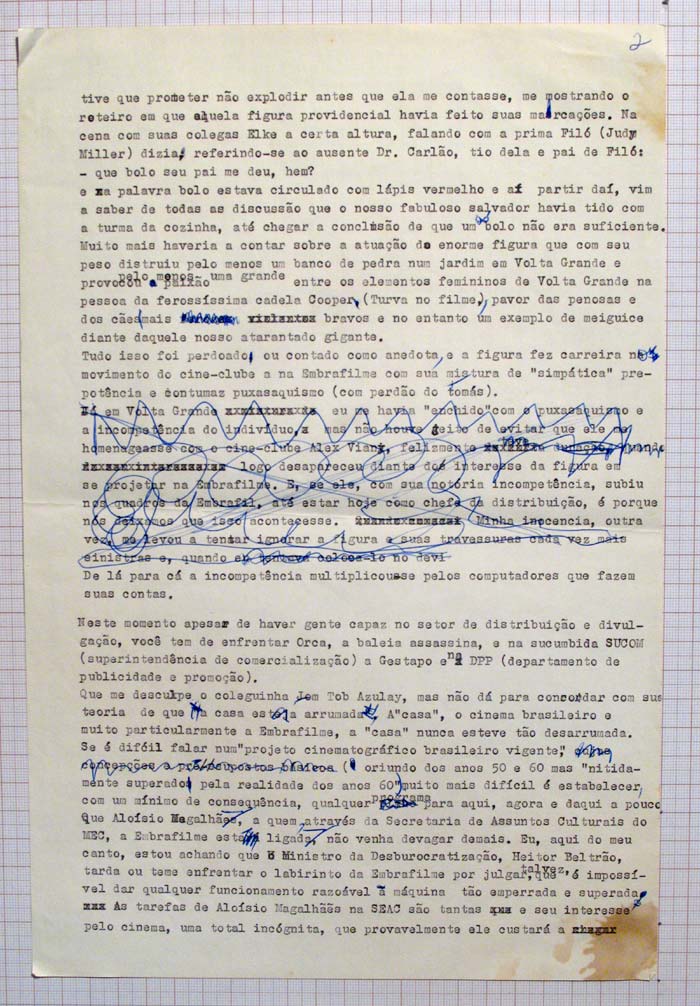 2
tive que prometer não explodir antes que ela me contasse, me mostrando o
roteiro em que aquela figura providencial havia feito suas marcações. Na
cena com suas colegas Elke a certa altura, falando com a prima Filó (Judy
Miller) dizia, referindo-se ao ausente Dr. Carlão, tio dela e pai de Filó:
- que bolo seu pai me deu, hem?
e a palavra bolo estava circulado com lápis vermelho e aí partir daí, vim
a saber de todas as discussão que o nosso fabuloso salvador havia tido com
a turma da cozinha, até chegar a conclusão de que um bolo não era suficiente.
Muito mais haveria a contar sobre a atuação de enorme figura que com seu
peso distruiu pelo menos um banco de pedra num jardim em Volta Grande e
pelo menos uma grande
provocou a paixão entre os elementos femininos de Volta Grande na
pessoa da ferossíssima cadela Cooper, (Turva no filme,) pavor das penosas e
dos cães mais bravos e no entanto um exemplo de meiguice
diante daquele nosso atarantado gigante.
Tudo isso foi perdoado, ou contado como anedota, e a figura fez carreira no
movimento do cine-clube a na Embrafilme com sua mistura de "simpática" pre-
potência e contumaz puxasaquismo (com perdão do tomás).
Lá em Volta Grande eu me havia "enchido" com o puxasaquismo e
a incompetência do indivíduo, mas não houve jeito de evitar que ele me
homenageasse com o cine-clube Alex Viany, felizmente
logo desapareceu diante do interesse da figura em
se projetar na Embrafilme. E, se ele, com sua notória incompetência, subiu
nos quadros da Embrafil, até estar hoje como chefe da distribuição, é porque
nós deixamos que isso acontecesse. Minha inocencia, outra
vez, me levou a tentar ignorar a figura e suas travessuras cada vez mais
sinistras e, quando eu tentava colocá-lo no devi
De lá para cá a incompetência multiplicouse pelos computadores que fazem
suas contas.
Neste momento apesar de haver gente capaz no setor de distribuição e divul-
gação, você tem de enfrentar Orca, a baleia assassina, e na sucumbida SUCOM
(superintendência de comercialização) a Gestapo e na DPP (departamento de
publicidade e promoção).
Que me desculpe o coleguinha Jom Tob Azulay, mas não dá para concordar com sua
teoria de que a casa está arrumada. A "casa", o cinema brasileiro e
muito particularmente a Embrafilme, a "casa" nunca esteve tão desarrumada.
Se é difóil falar num "projeto cinematográfico brasileiro vigente,"
concepções a pressupostos básicos ( oriundo dos anos 50 e 60 mas "nitida-
mente superado pela realidade dos anos 60") muito mais difícil é estabelecer,
com um mínimo de consequência, qualquer programa para aqui, agora e daqui a pouco
Que Aloísio Magalhães, a quem através da Secretaria de Assuntos Culturais do
MEC, a Embrafilme está ligada, não venha devagar demais. Eu, aqui do meu
canto, estou achando que o Ministro da Desburocratização, Heitor Beltrão,
tarda ou teme enfrentar o labirinto da Embrafilme por julgar, talvez, que é impossí-
vel dar qualquer funcionamento razoável à máquina tão emperrada e superada.
As tarefas de Aloísio Magalhães na SEAC são tantas e seu interesse
pelo cinema, uma total incógnita, que provavelmente ele custará a